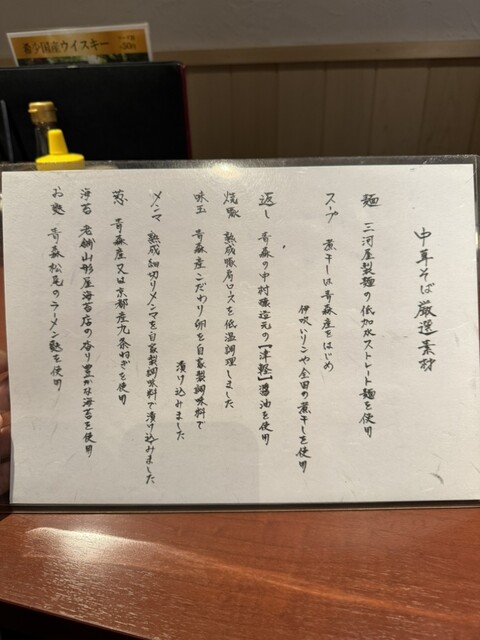 希少国産ウイスキー
中華そば厳選素材
麺 三河屋製麺の低加水ストレート麺を使用
スープ 煮干しは青森産をはじめ
伊吹いりこや全国の煮干しを使用
返し 青森の中村醸造元の「津軽」醤油を使用
焼豚 熟成豚肩ロースを低温調理しました
味玉 青森産こだわり卵を自家製調味料で
漬け込みました
メンマ 熟成細切りメンマを自家製調味料で漬け込みました
葱 青森産又は京都産九条ねぎを使用
海苔 老舗山形屋海苔店の香り豊かな海苔を使用
お麩 青森松尾のラーメン麩を使用